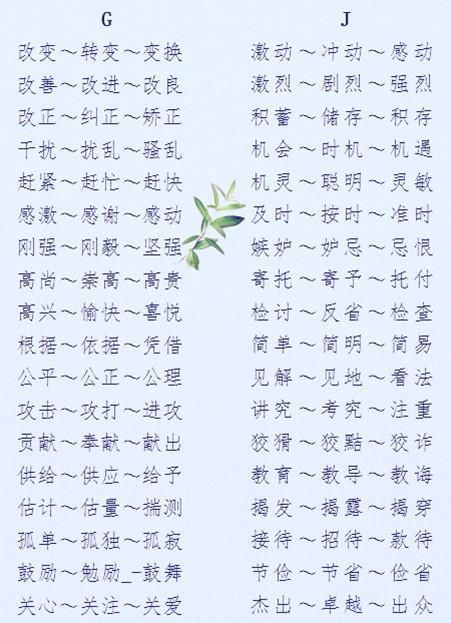 G
改变～转变～变换
改善～改进～改良
改正～纠正～矫正
干扰～扰乱～骚乱
赶紧～赶忙～赶快
感激～感谢～感动
刚强～刚毅～坚强
高尚～崇高～高贵
高兴～愉快～喜悦
根据～依据～凭借
公平～公正～公理
攻击～攻打～进攻
贡献～奉献～献出
供给～供应～给予
估计～估量～揣测
孤单～孤独～孤寂
鼓励～勉励_-鼓舞
关心～关注～关爱
J
激动～冲动～感动
激烈～剧烈～强烈
积蓄～储存～积存
机会～时机～机遇
机灵～聪明～灵敏
及时～按时～准时
嫉妒～妒忌～忌恨
寄托～寄予～托付
检讨～反省～检查
简单～简明～简易
见解～见地～看法
讲究～考究～注重
狡猾～狡黠～狡诈
教育～教导～教诲
揭发～揭露～揭穿
接待～招待～款待
节俭～节省～俭省
杰出～卓越～出众